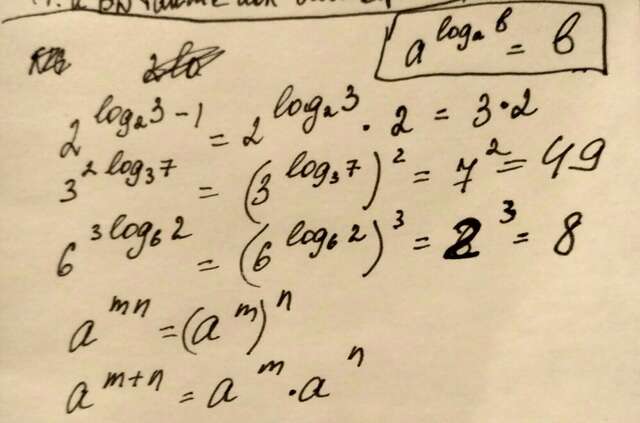 a^{log_a b} = b
2^{log_2 3 - 1} = 2^{log_2 3} · 2 = 3 · 2
3^{2 log_3 7} = (3^{log_3 7})^2 = 7^2 = 49
6^{3 log_6 2} = (6^{log_6 2})^3 = 2^3 = 8
a^{mn} = (a^m)^n
a^{m+n} = a^m · a^n